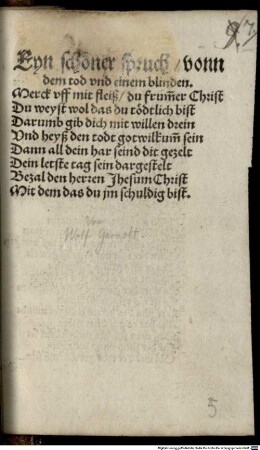 Eyn schöner spruch / vonn
dem tod vnd einem blinden.
Merck vff mit fleiß / du frum̃er Christ
Du weyst wol das du tödtlich bist
Darumb gib dich mit willen drein
Vnd heyß den todt gotwilkum̃ sein
Dann all dein har seind dir gezelt
Dein letste tag sein dargestelt
Bezal den herren Jhesum Christ
Mit dem das du jm schuldig bist.
Von
Wolf
5